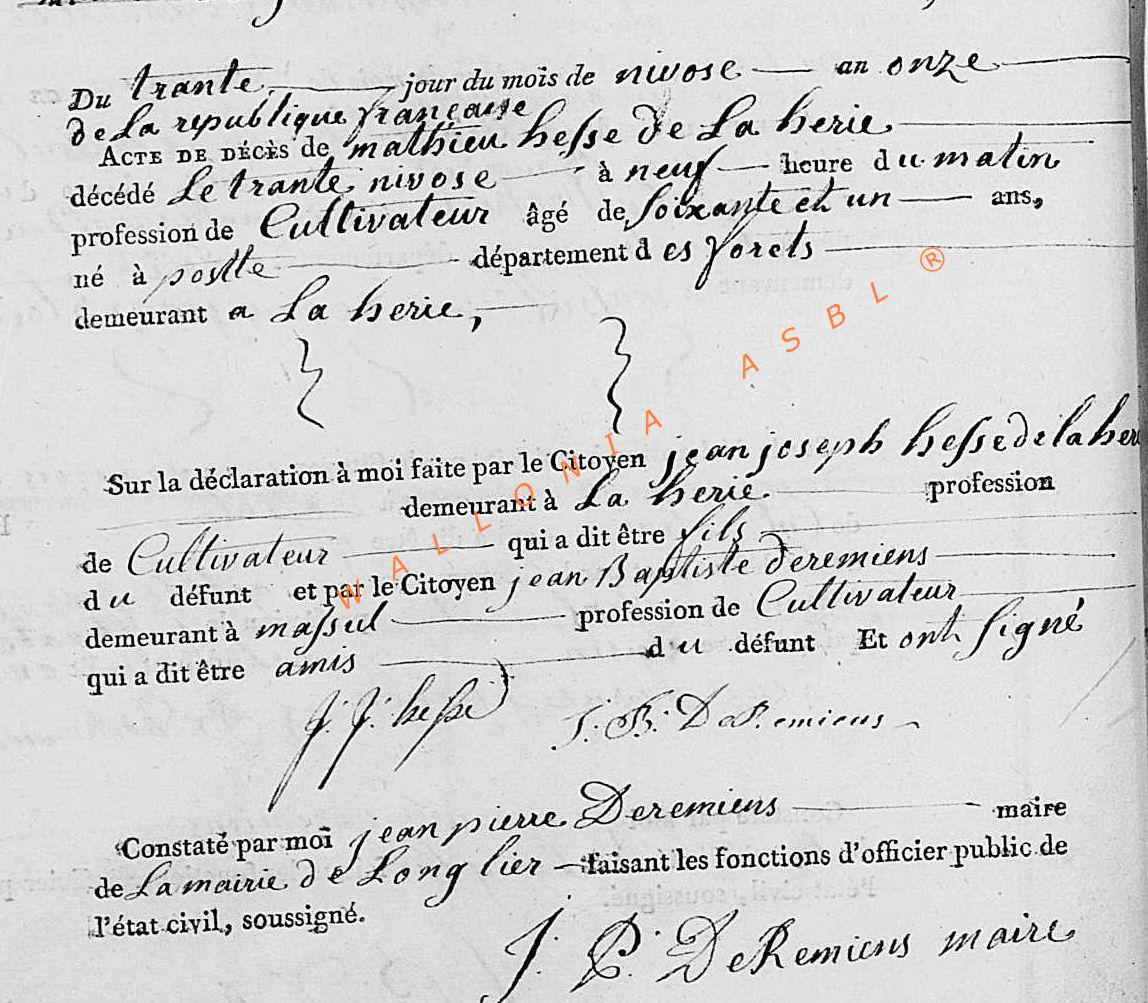 Du trante jour du mois de nivose an onze
de La republique française
ACTE DE DÉCÈS de mathieu hesse de La herie
décédé Le trante nivose à neuf heure du matin
profession de Cultivateur âgé de soixante et un ans,
né à postte département des forets
demeurant a La herie,
Sur la déclaration à moi faite par le Citoyen jean joseph hesse de la her
demeurant à La herie profession
de Cultivateur qui a dit être fils
du défunt et par le Citoyen jean Baptiste deremiens
demeurant à massul profession de Cultivateur
qui a dit être amis du défunt Et ont signé
J. J. hesse J. B. DeRemiens
Constaté par moi jean pierre Deremiens maire
de La mairie de Longlier faisant les fonctions d'officier public de
l'état civil, soussigné.
J. P. DeRemiens maire
WALLONIA ASBL ®